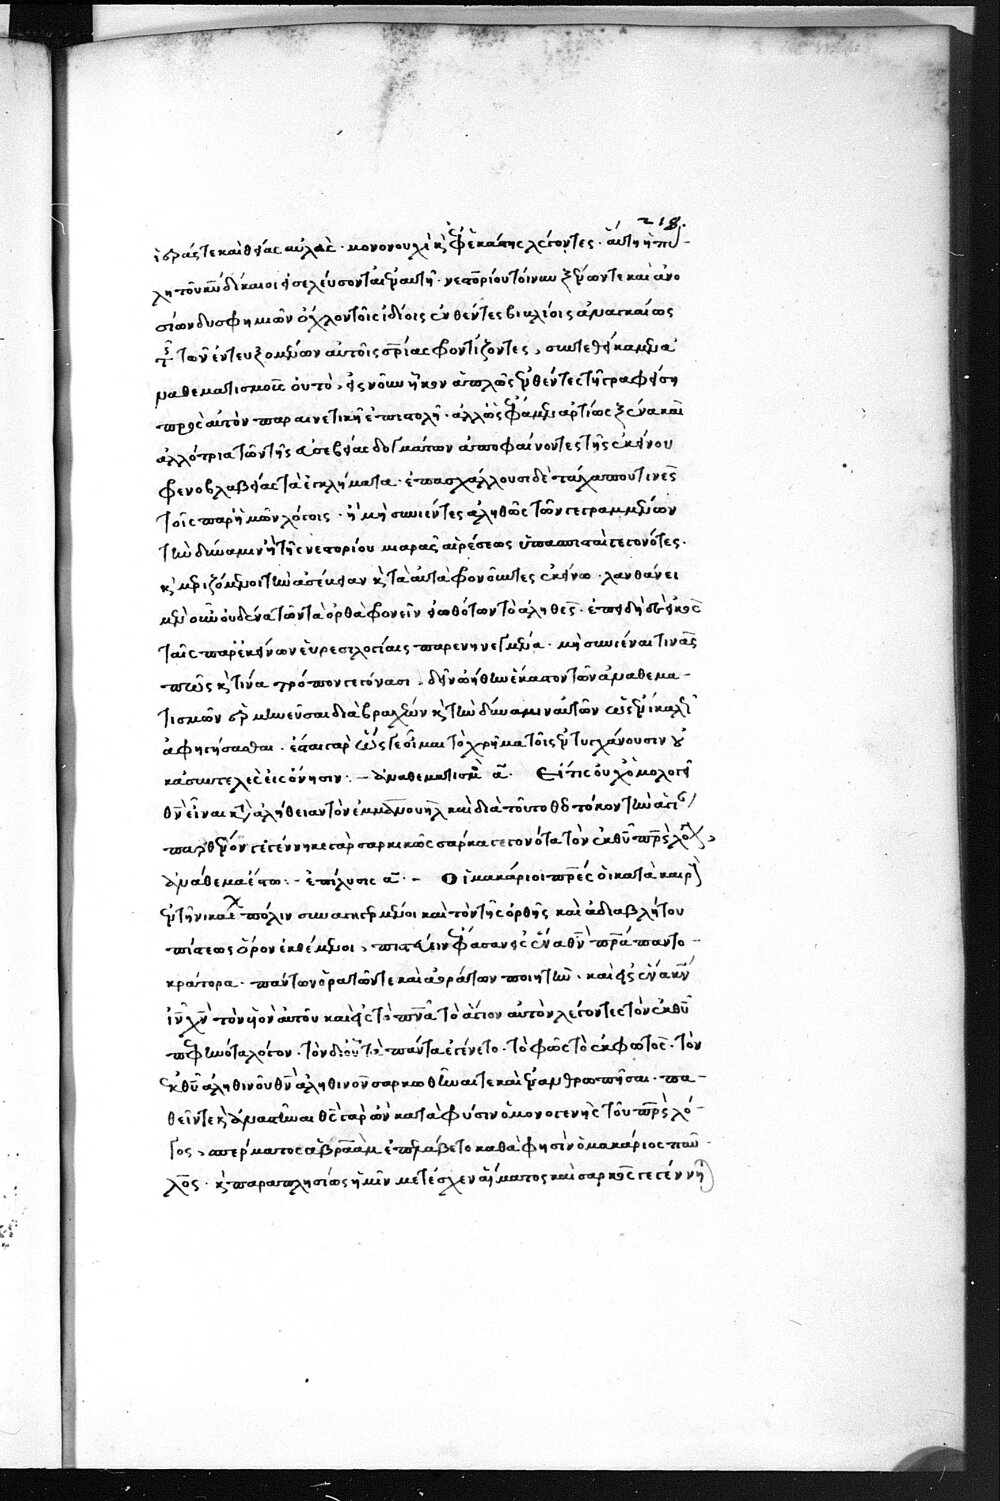 218.
ἱεράς τε καὶ θείας αὐλάς · μονονουχὶ κ ἐφ ἑκάστης λέγοντες · αὕτη ἡ πύ-
λη τοῦ κυ δίκαιοι εἰσελεύσονται ἐν αὐτῆ · νεστορίου τοίνυν ξένων τε καὶ ἀνο
σίων δυσφημιῶν ὄχλον τοῖς ἰδίοις ἐνθέντες βιβλίοις ἀναγκαίως
τῆς τῶν ἐντευξομένων αὐτοῖς σρίας φροντίζοντες, συντεθείκαμεν ἀ
ναθεματισμοὺς οὐ το
πρὸς αὐτὸν παραινετικῆ ἐπιστολῆ · ἀλλ ὡς ἔφαμεν ἀρτίως ξένα καὶ
ἀλλότρια τῶν τῆς εὐσεβείας δογμάτων ἀποφαίνοντες τῆς ἐκείνου
φρενοβλαβείας τὰ ἐγκλήματα · ἐπασχάλλουσι δὲ τάχα που τινὲς
τοῖς παρ ἡμῶν λόγοις · ἢ μὴ συνιέντες ἀληθῶς τῶν γεγραμμένων
τὴν δύναμιν ἢ τῆς νεστορίου μιαρᾶς αἱρέσεως ὑπασπισταὶ γεγονότες ·
κ μεριζόμενοι τὴν ἀσέβειαν κ τὰ αὐτὰ φρονοῦντες ἐκείνω · λανθάνει
μὲν οὖν οὐδένα τῶν τὰ ὀρθὰ φρονεῖν εἰωθότων τὸ ἀληθὲς · ἐπειδὴ δὲ εἰκὸς
ταῖς παρ ἐκείνων εὑρεσιλογίαις παρενηνεγμένα · μὴ συνιέναι τινὰς
πῶς κ τίνα τρόπον γεγόνασι · δεῖν ᾠήθην ἕκαστον τῶν ἀναθεμα-
τισμῶν ἑρμηνεῦσαι διὰ βραχέων κ τὴν δύναμιν αὐτῶν ὡς ἔνι καλῶς
ἀφηγήσασθαι · ἔσται γὰρ ὥς γε οἶμαι τὸ χρῆμα τοῖς ἐντυγχάνουσιν οὐ
κ ἀσυντελὲς εἰς ὄνησιν · – ἀναθεματισμ α · Εἴ τις οὐχ ὁμολογεῖ
θν εἶναι κατ ἀλήθειαν τὸν ἐμμανουὴλ καὶ διὰ τοῦτο θεοτόκον τὴν ἁγί
παρθένον γεγέννηκε γὰρ σαρκικῶς σάρκα γεγονότα τὸν ἐκ θυ πρς λόγον,
ἀνάθεμα ἔστω :– ἐπίλυσις α · – Οἱ μακάριοι πρές οἱ κατὰ καιρ
ἐν τῆ νικαέ πόλιν συναγηγερμένοι καὶ τὸν τῆς ὀρθῆς καὶ ἀδιαβλήτου
πίστεως ὅρον ἐκθέμενοι, πιστεύειν ἔφασαν εἰς ἕνα θν πρα παντο-
κράτορα · πάντων ὁρατῶν τε καὶ ἀοράτων ποιητὴν · καὶ εἰς ἕνα κν
ιν χν τὸν υἱὸν αὐτοῦ καὶ εἰς τὸ πνα τὸ ἅγιον αὐτὸν λέγοντες τὸν ἐκ θυ
πεφηνότα λόγον · τὸν δι οὗ τὰ πάντα ἐγένετο · τὸ φῶς τὸ ἐκ φωτός · τὸν
ἐκ θυ ἀληθινοῦ θν ἀληθινὸν σαρκωθῆναι τε καὶ ἐνανθρωπῆσαι · πα-
θεῖν τε κ ἀναστῆναι θς γὰρ ὢν κατὰ φύσιν ὁ μονογενὴς τοῦ πρς λό-
γος, σπέρματος ἀβραὰμ ἐπελάβετο καθά φησιν ὁ μακάριος παῦ-
λος · κ παραπλησίως ἡμῖν μετέσχεν αἵματος καὶ σαρκὸς γεγέννη